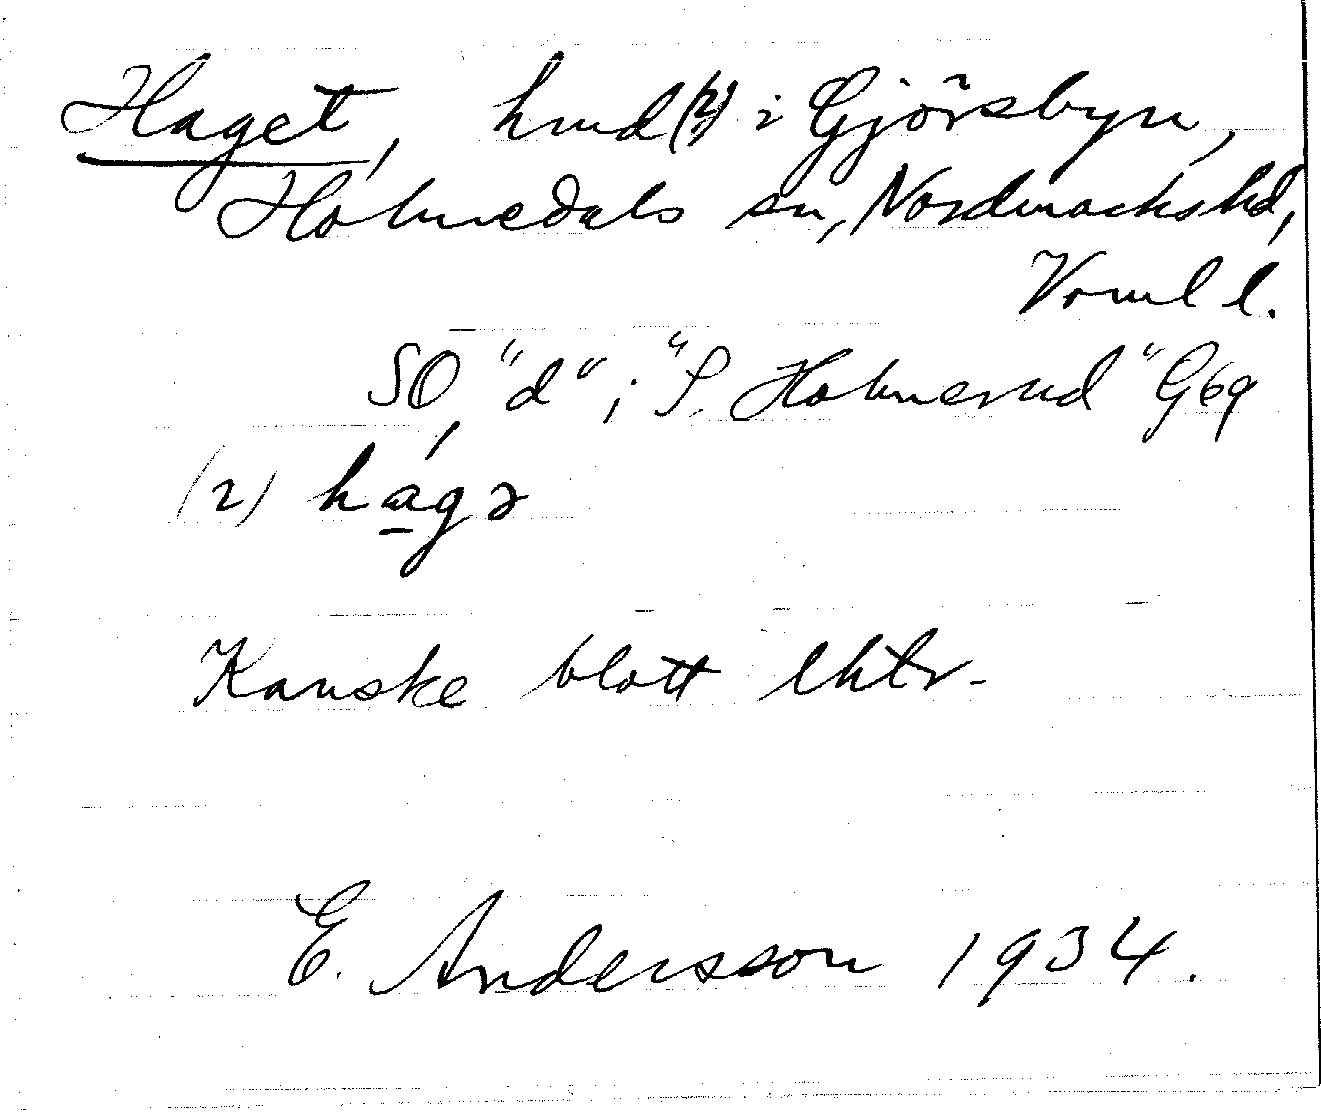 Haget, hmd (2) i Gjörsbyn,
Holmedals sn, Nordmarks hd,
Värml l.
SO "d"; "S. Holmerud" G69
(2) hágə
Kanske blott lhtr.
E. Andersson 1934.